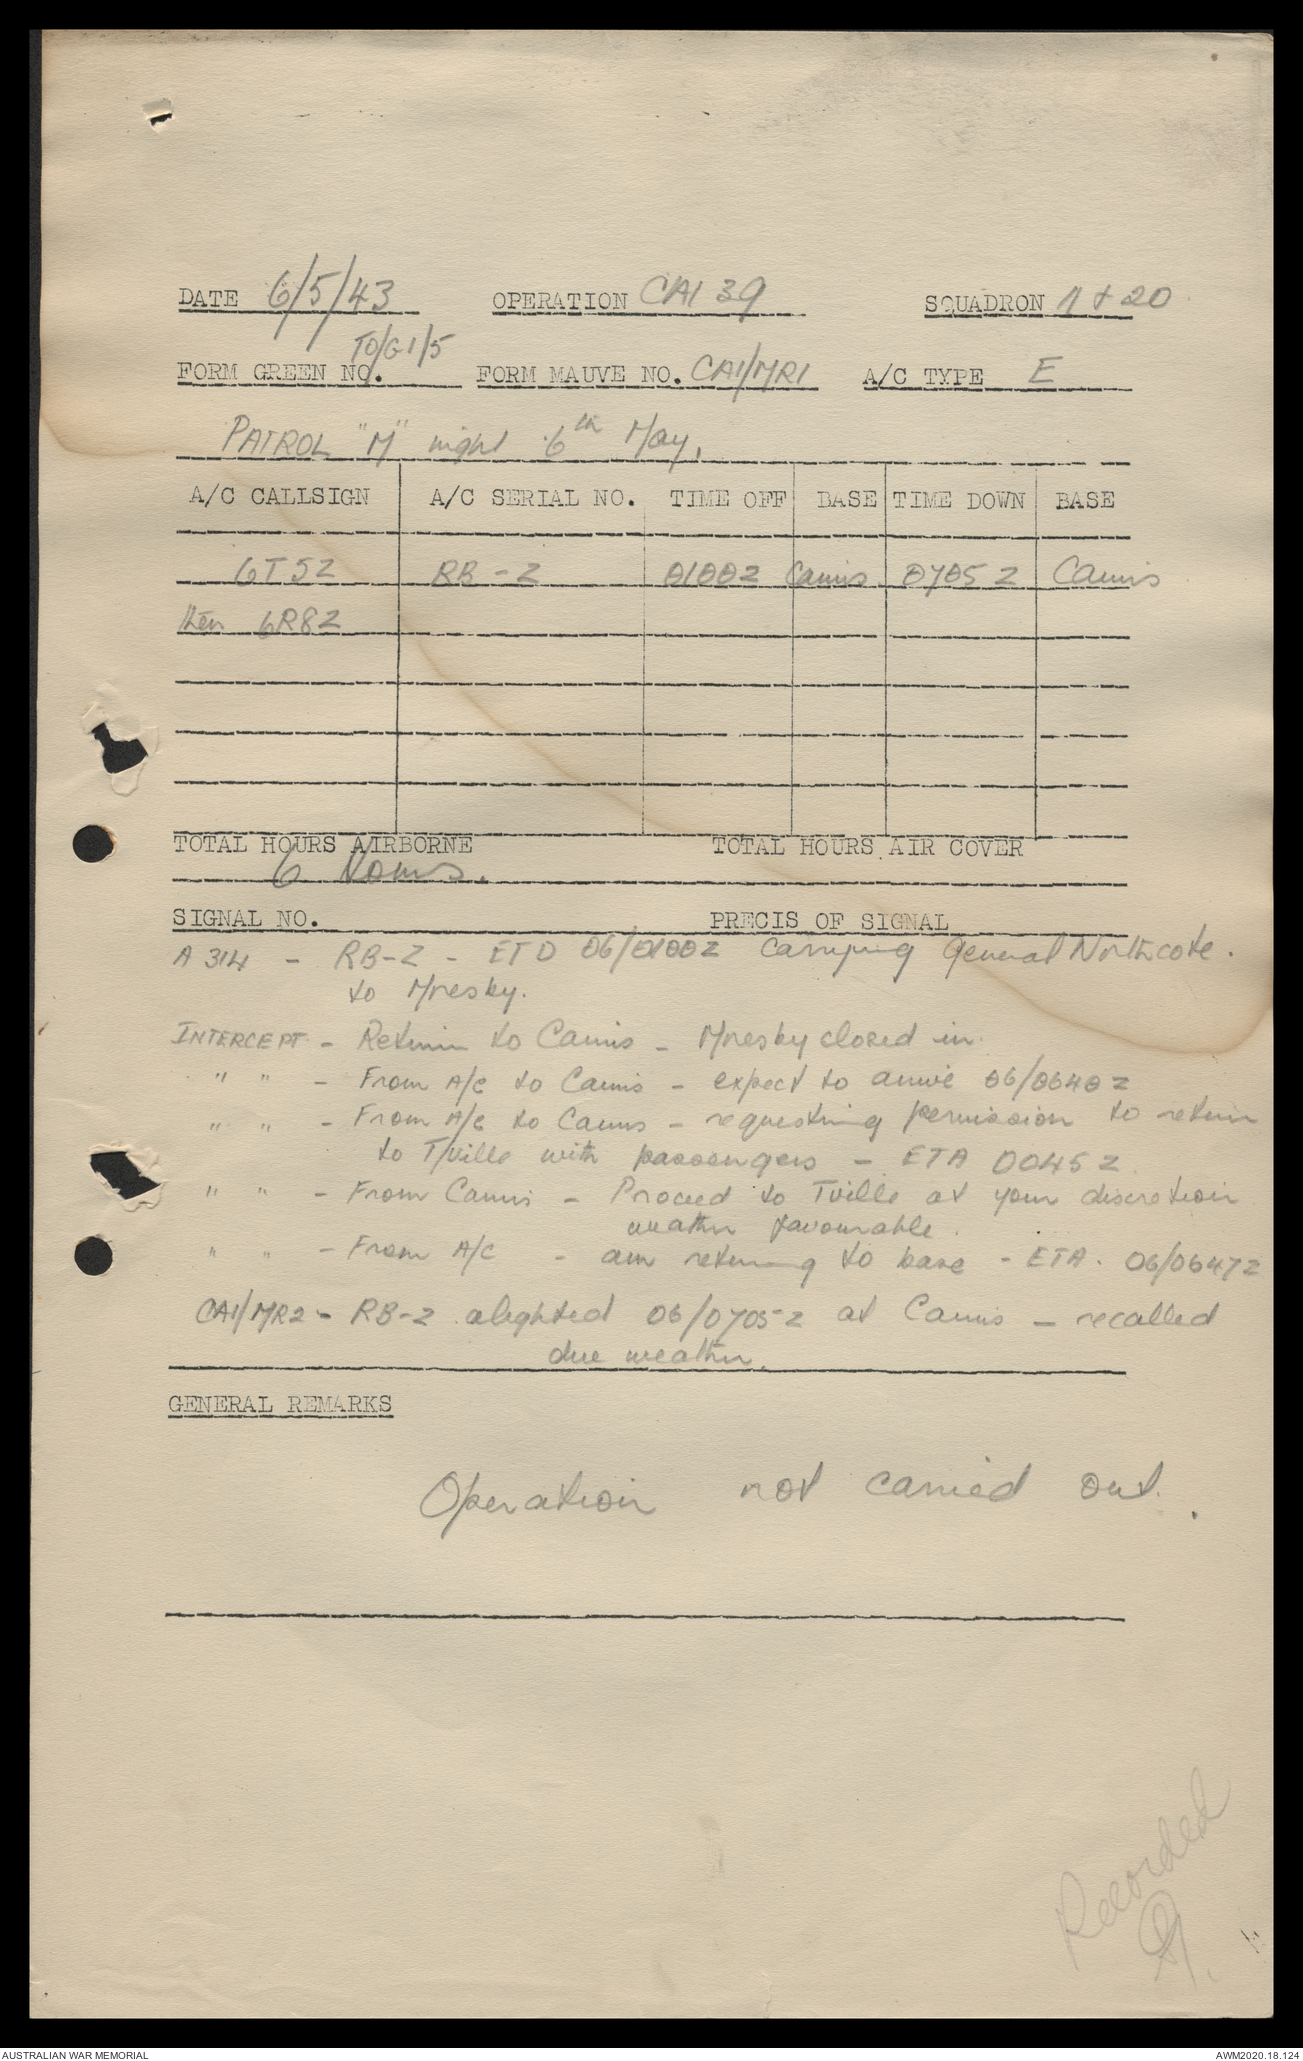 DATE 6/5/43 OPERATION CAI 39 SQUADRON 11 & 20
FORM GREEN NO. TO/G1/5 FORM MAUVE NO. CAI/MR1 A/C TYPE E
PATROL "M" night 6th May.
A/C CALLSIGN A/C SERIAL NO. TIME OFF BASE TIME DOWN BASE
6T5Z RB-2 0100Z Cairns 0705Z Cairns
then 6R8Z
TOTAL HOURS AIRBORNE TOTAL HOURS AIR COVER
6 Hours.
SIGNAL NO. PRECIS OF SIGNAL
A 314 - RB-2 - ETD 06/0100Z carrying General Northcote.
to Moresby.
INTERCEPT - Return to Cairns - Moresby closed in.
" " - From A/C to Cairns - expect to arrive 06/0640Z
" " - From A/C to Cairns - requesting permission to return
to T/ville with passengers - ETA 0045Z.
" " - From Cairns - Proceed to Tville at your discretion
weather favourable.
" " - From A/C - am returning to base - ETA. 06/0647Z
CAI/MR2 - RB-2 alighted 06/0705Z at Cairns - recalled
due weather.
GENERAL REMARKS
Operation not carried out.
Recorded
AUSTRALIAN WAR MEMORIAL AWM2020.18.124